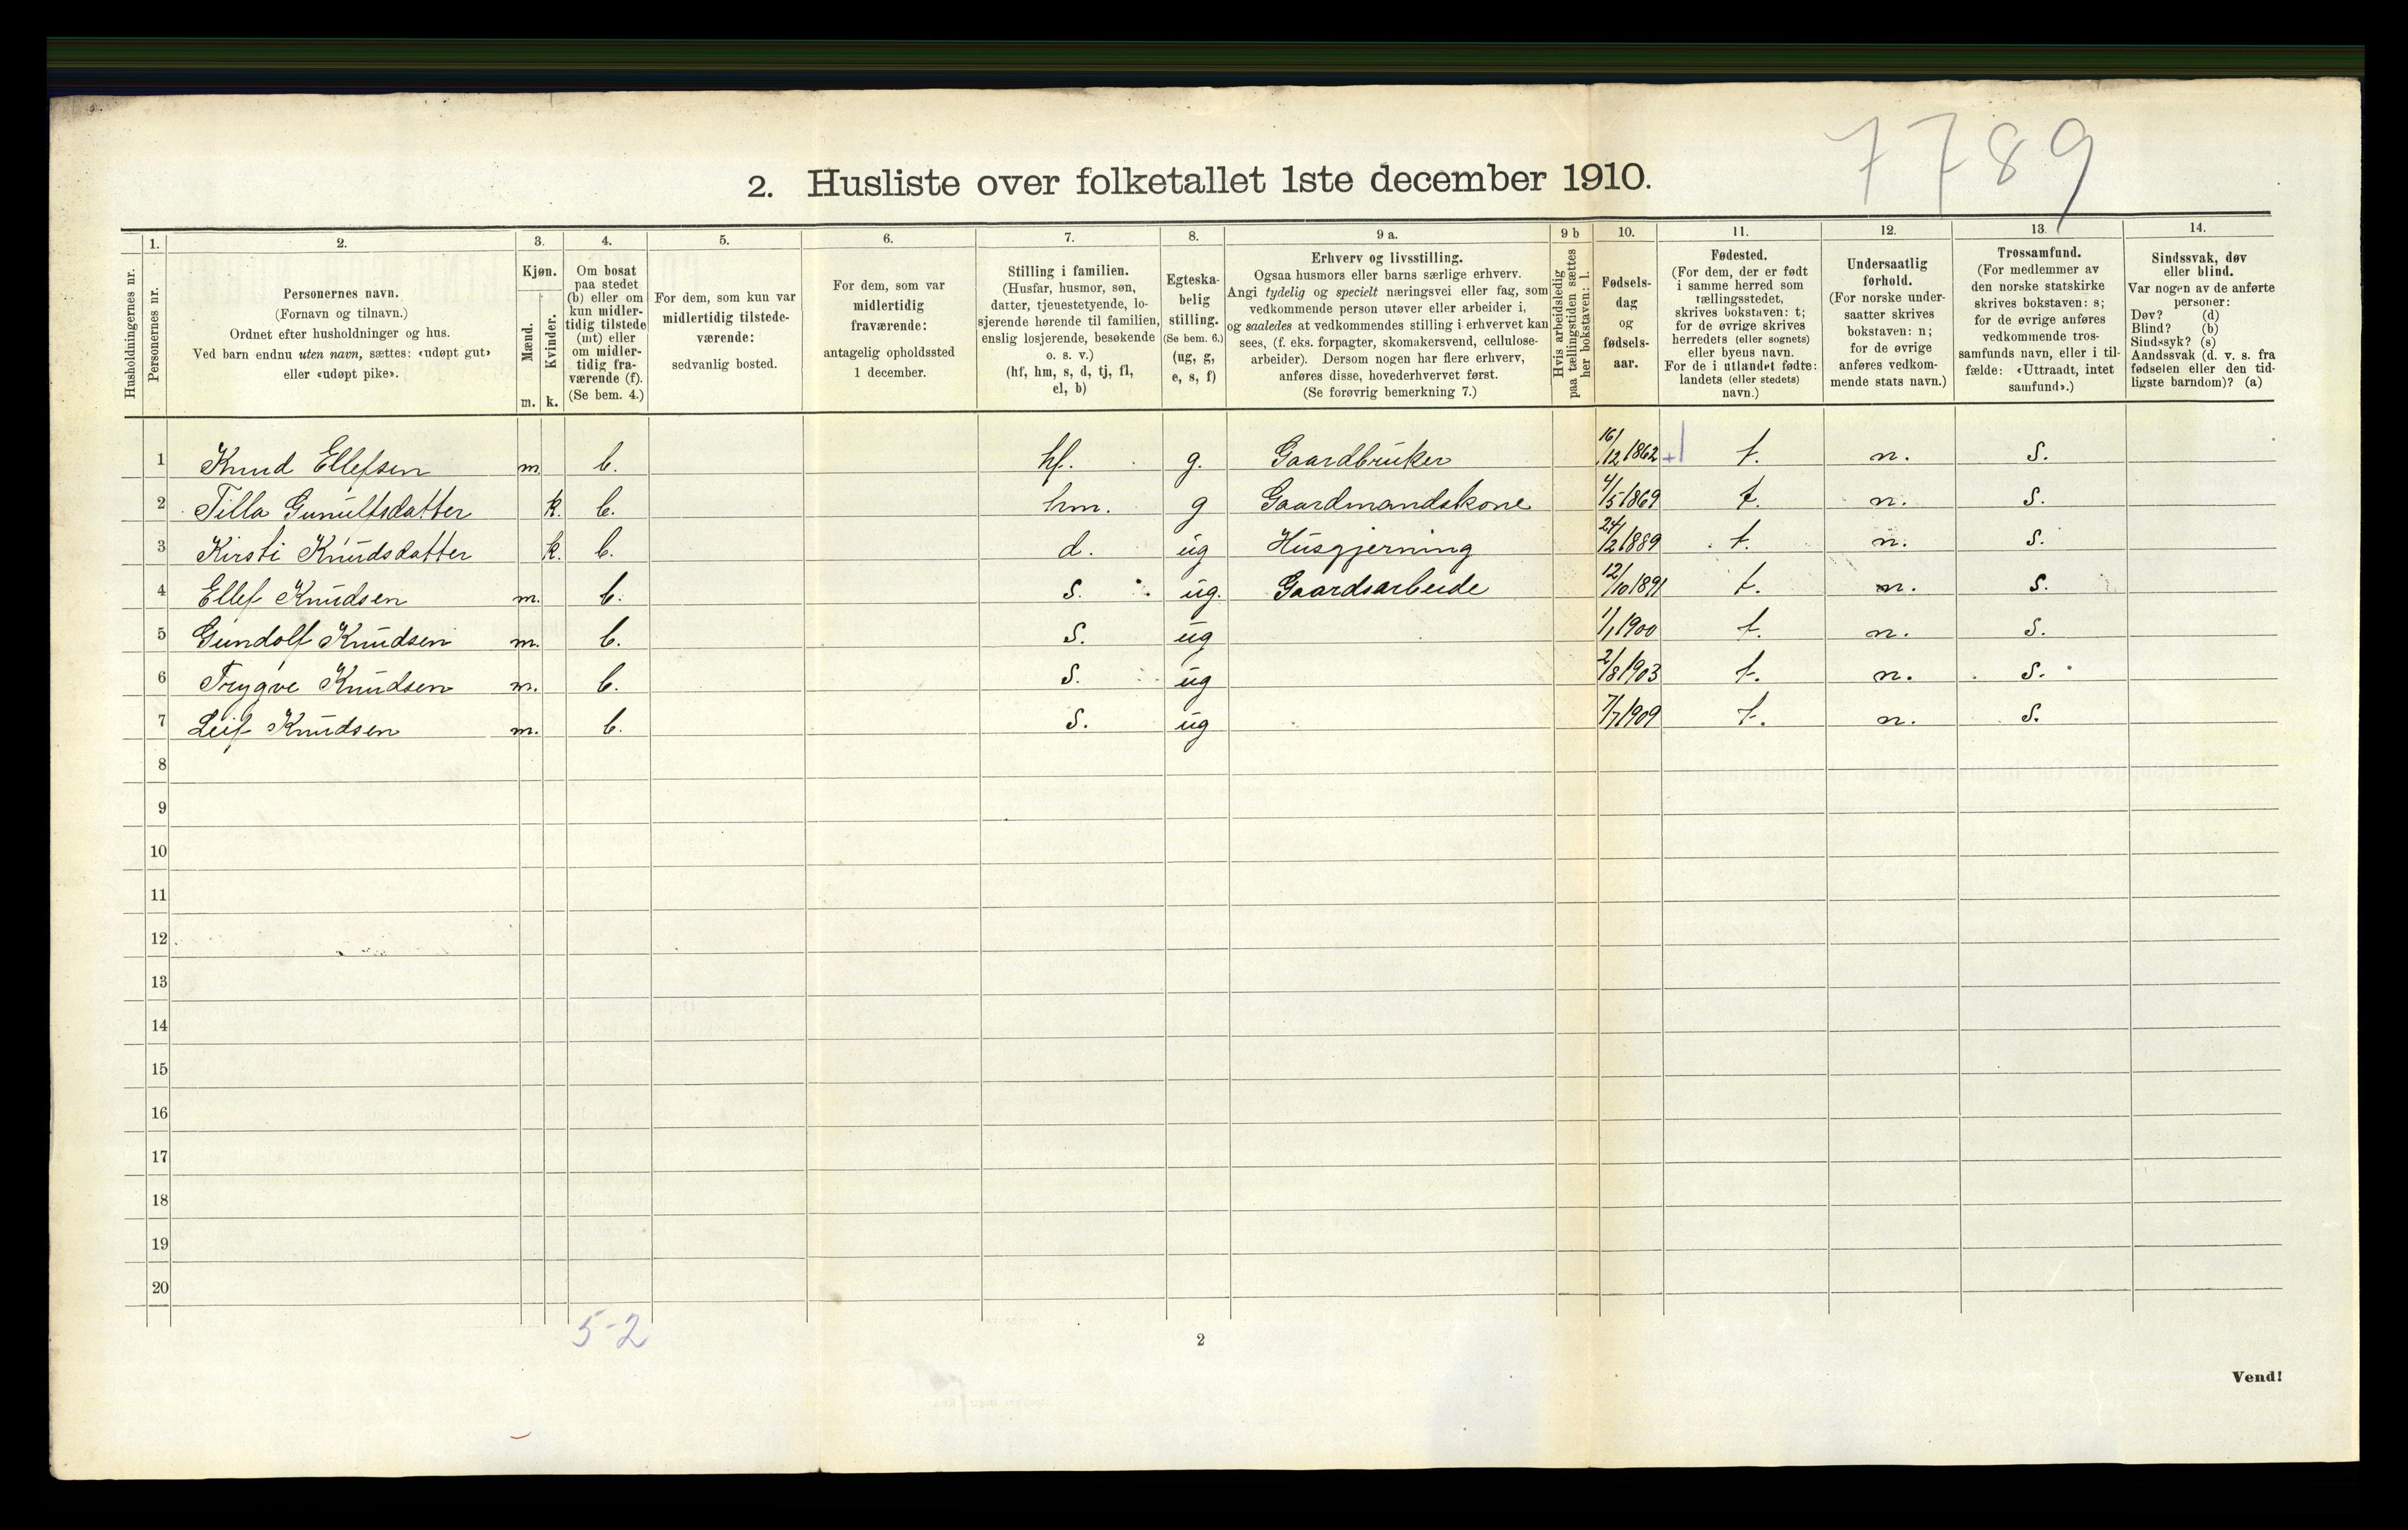 7789
2. Husliste over folketallet 1ste december 1910.
Husholdningernes nr.
1.
Personernes nr.
2.
Personernes navn.
(Fornavn og tilnavn.)
Ordnet efter husholdninger og hus.
Ved barn endnu uten navn, sættes: «udøpt gut»
eller «udøpt pike».
3.
Kjøn.
Mænd.
Kvinder.
m. k.
4.
Om bosat
paa stedet
(b) eller om
kun midler-
tidig tilstede
(mt) eller
om midler-
tidig fra-
værende (f).
(Se bem. 4.)
5.
For dem, som kun var
midlertidig tilstede-
værende:
sedvanlig bosted.
6.
For dem, som var
midlertidig
fraværende:
antagelig opholdssted
1 december.
7.
Stilling i familien.
(Husfar, husmor, søn,
datter, tjenestetyende, lo-
sjerende hørende til familien,
enslig losjerende, besøkende
o. s. v.)
(hf, hm, s, d, tj, fl,
el, b)
8.
Egteska-
belig
stilling.
(Se bem. 6.)
(ug, g,
e, s, f)
9 a.
Erhverv og livsstilling.
Ogsaa husmors eller barns særlige erhverv.
Angi tydelig og specielt næringsvei eller fag, som
vedkommende person utøver eller arbeider i,
og saaledes at vedkommendes stilling i erhvervet kan
sees, (f. eks. forpagter, skomakersvend, cellulose-
arbeider). Dersom nogen har flere erhverv,
anføres disse, hovederhvervet først.
(Se forøvrig bemerkning 7.)
9 b
Hvis arbeidsledig
paa tællingstiden sættes
her bokstaven: l.
10.
Fødsels-
dag
og
fødsels-
aar.
11.
Fødested.
(For dem, der er født
i samme herred som
tællingsstedet,
skrives bokstaven: t;
for de øvrige skrives
herredets (eller sognets)
eller byens navn.
For de i utlandet fødte:
landets (eller stedets)
navn.)
12.
Undersaatlig
forhold.
(For norske under-
saatter skrives
bokstaven: n;
for de øvrige
anføres vedkom-
mende stats navn.)
13.
Trossamfund.
(For medlemmer av
den norske statskirke
skrives bokstaven: s;
for de øvrige anføres
vedkommende tros-
samfunds navn, eller i til-
fælde: «Uttraadt, intet
samfund».)
14.
Sindssvak, døv
eller blind.
Var nogen av de anførte
personer:
Døv? (d)
Blind? (b)
Sindssyk? (s)
Aandssvak (d. v. s. fra
fødselen eller den tid-
ligste barndom)? (a)
1 Knud Ellefsen m. b. hf. g. Gaardbruker 16/12 1862 t. n. s.
2 Tilla Gunulfsdatter k. b. hm. g Gaardmandskone 4/5 1869 t. n. s.
3 Kirsti Knudsdatter k. b. d. ug Husgjerning 24/2 1889 t. n. s.
4 Ellef Knudsen m. b. s. ug. Gaardsarbeide 12/10 1891 t. n. s.
5 Gundolf Knudsen m. b. s. ug 1/1 1900 t. n. s.
6 Trygve Knudsen m. b. s. ug 2/8 1903 t. n. s.
7 Leif Knudsen m. b. s. ug 7/7 1909 t. n. s.
8
9
10
11
12
13
14
15
16
17
18
19
20
5-2
2
Vend!